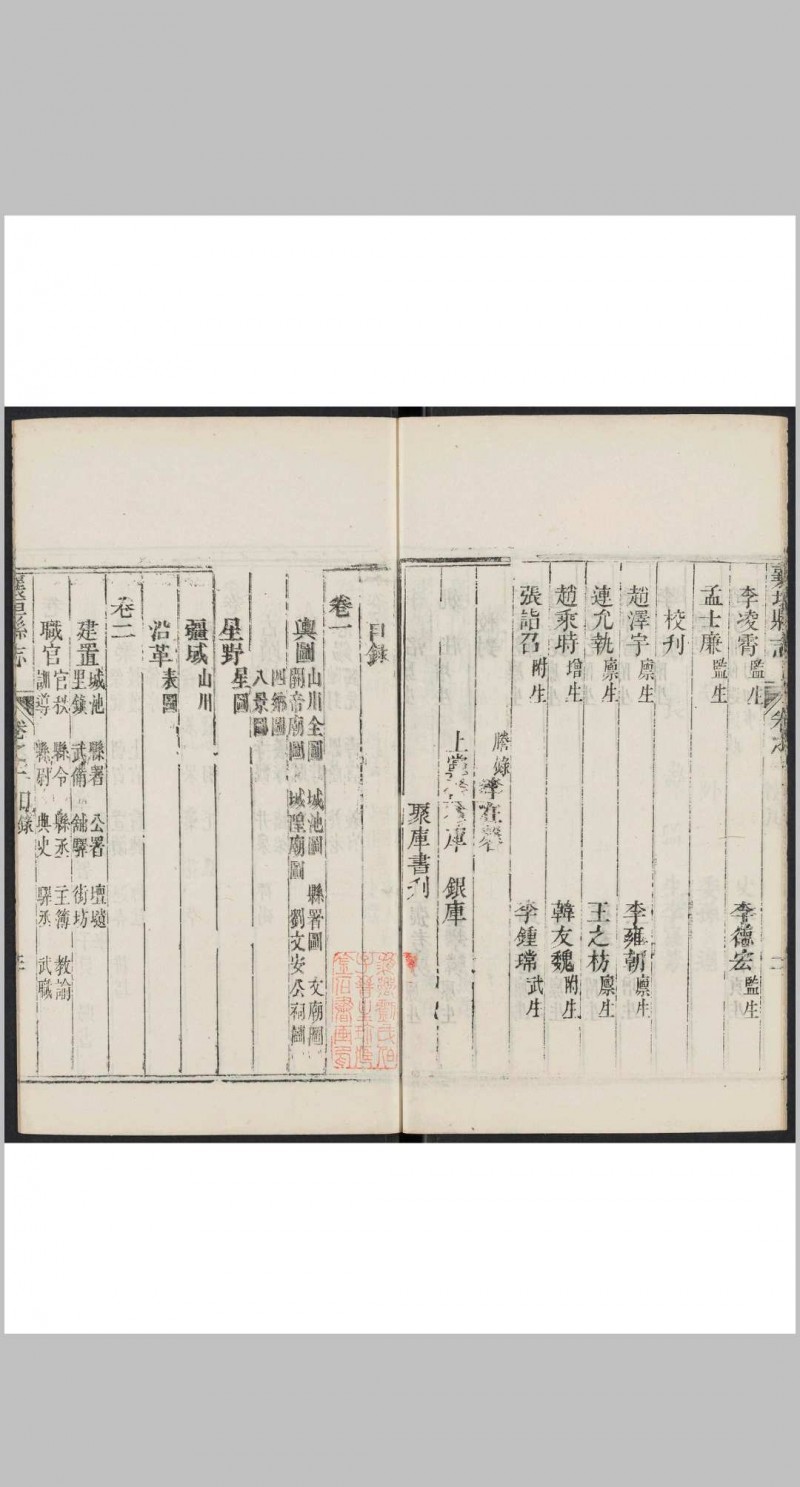 襄垣縣志
李凌霄監生 李德宏監生
孟士廉監生
校刋
趙澤宇廪生 李雍朝廪生
連允執廪生 王之枋廪生
趙秉時增生 韓友魏附生
張詒召附生 李鍾瑺武生
謄錄
銀庫
聚庫書刋
目錄
卷一
輿圖 山川全圖 城池圖 縣署圖 文廟圖
關帝廟圖 城隍廟圖 劉文安公祠圖
四鄉圖
八景圖
星野 星圖
疆域 山川
沿革 表圖
卷二
建置 城池 縣署 公署 壇壝
里鎮 武備 舖驛 街坊
職官 官秩 縣令 縣丞 主簿 教諭
訓導 縣尉 典史 驛丞 武職
襄垣縣志 目錄